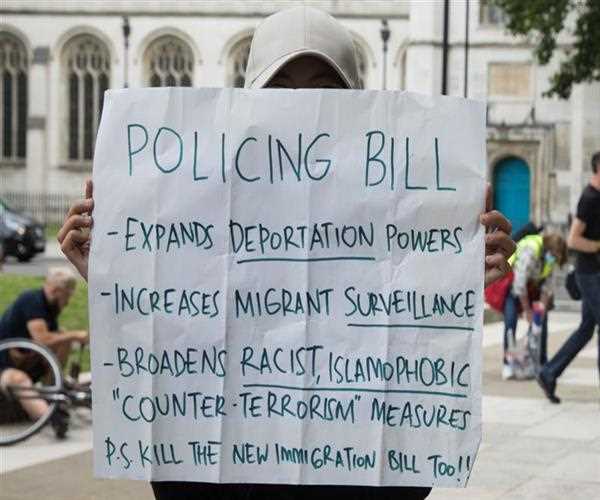 POLICING BILL
- EXPANDS DEPORTATION POWERS
- INCREASES MIGRANT SURVEILLANCE
- BROADENS RACIST, ISLAMOPHOBIC
"COUNTER-TERRORISM" MEASURES
P.S. KILL THE NEW IMMIGRATION BILL TOO!!